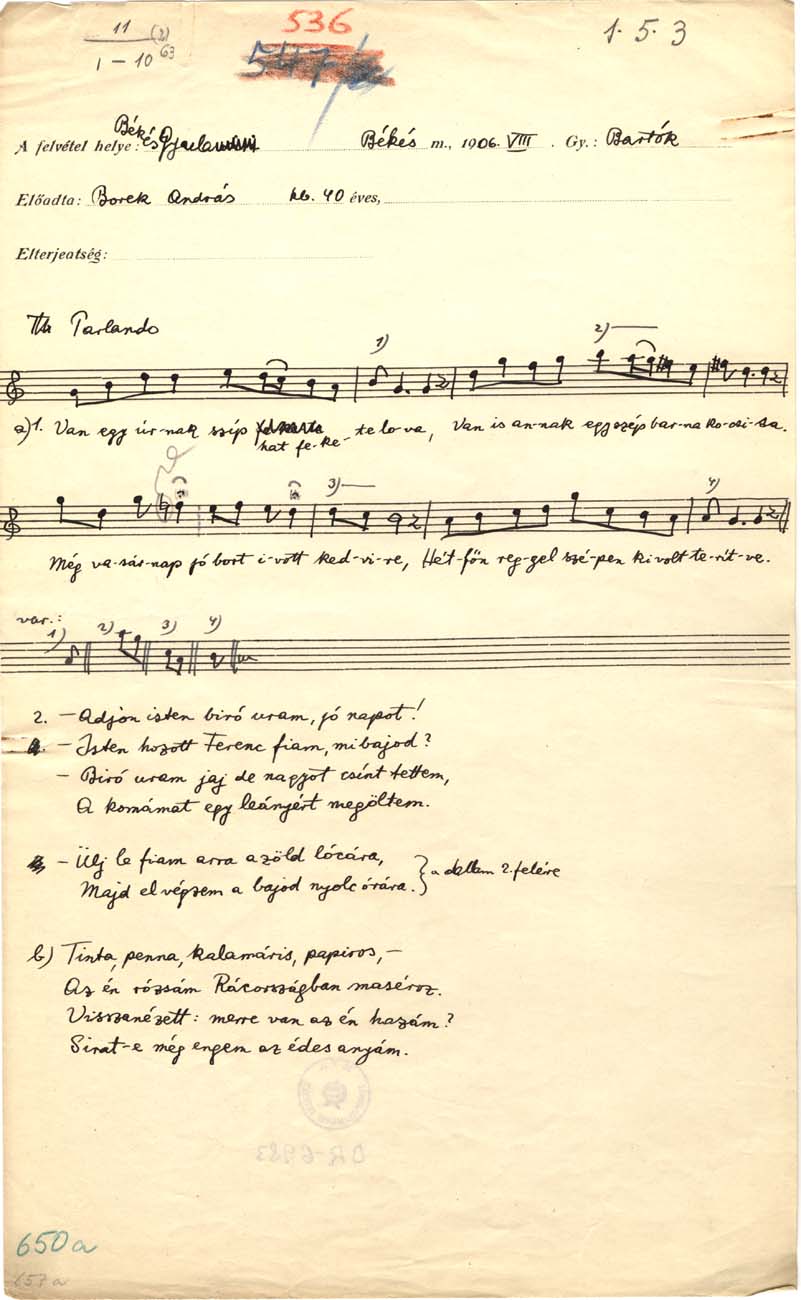 11 (2)
536
1. 5. 3
1-10 63
547/a
A felvétel helye: Békés Gyula Békés m., 1906. VIII . Gy.: Bartók
Előadta: Borek András kb. 40 éves,
Elterjedtség:
Parlando
1) 2)
a) 1. Van egy úr-nak szép hat fe-ke-te lo-va, Van is an-nak egy szép bar-na ko-csi-sa.
3) 4)
Még va-sár-nap jó bort i-vott ked-vi-re, Hét-főn reg-gel szé-pen ki volt te-rít-ve.
var.:
1) 2) 3) 4)
2. – Adjon isten biró uram, jó napot!
– Isten hozott Ferenc fiam, mi bajod?
– Biró uram jaj de nagyot csínt tettem,
A komámat egy leányért megöltem.
– Ülj le fiam arra a zöld lócára,
Majd el végzem a bajod nyolc órára. } a dallam 2. felére
b) Tinta, penna, kalamáris, papiros, –
Az én rózsám Rácországban maséroz.
Visszanézett: merre van az én hazám?
Sirat-e még engem az édes anyám.
BR-6983
650a
657a